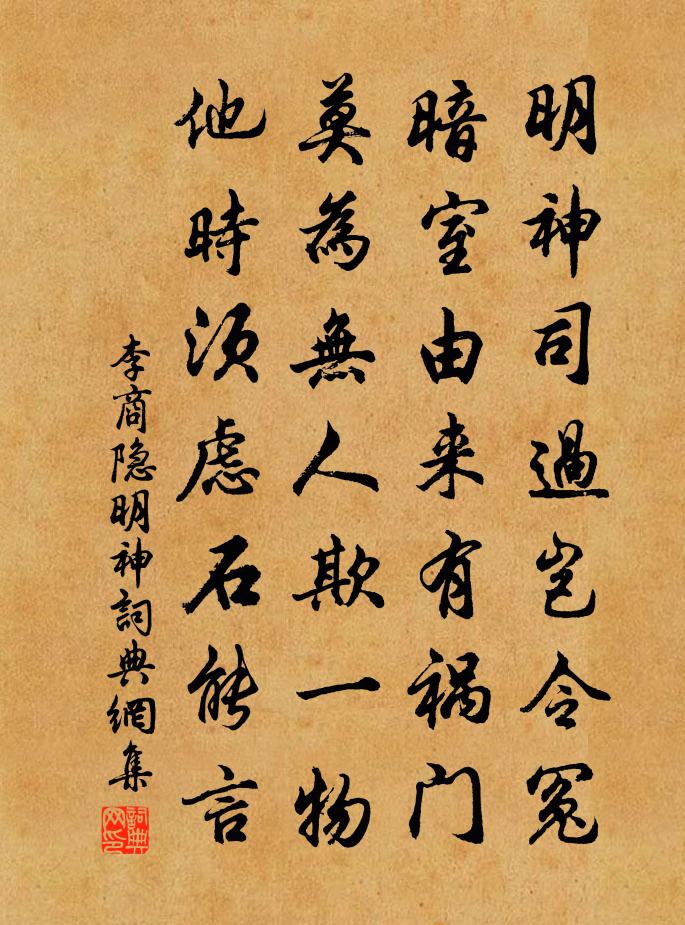 明神司過岂令冤
暗室由来有祸门
莫為無人欺一物
他時须虑石能言
李商隐明神詞典網集
詞典网印